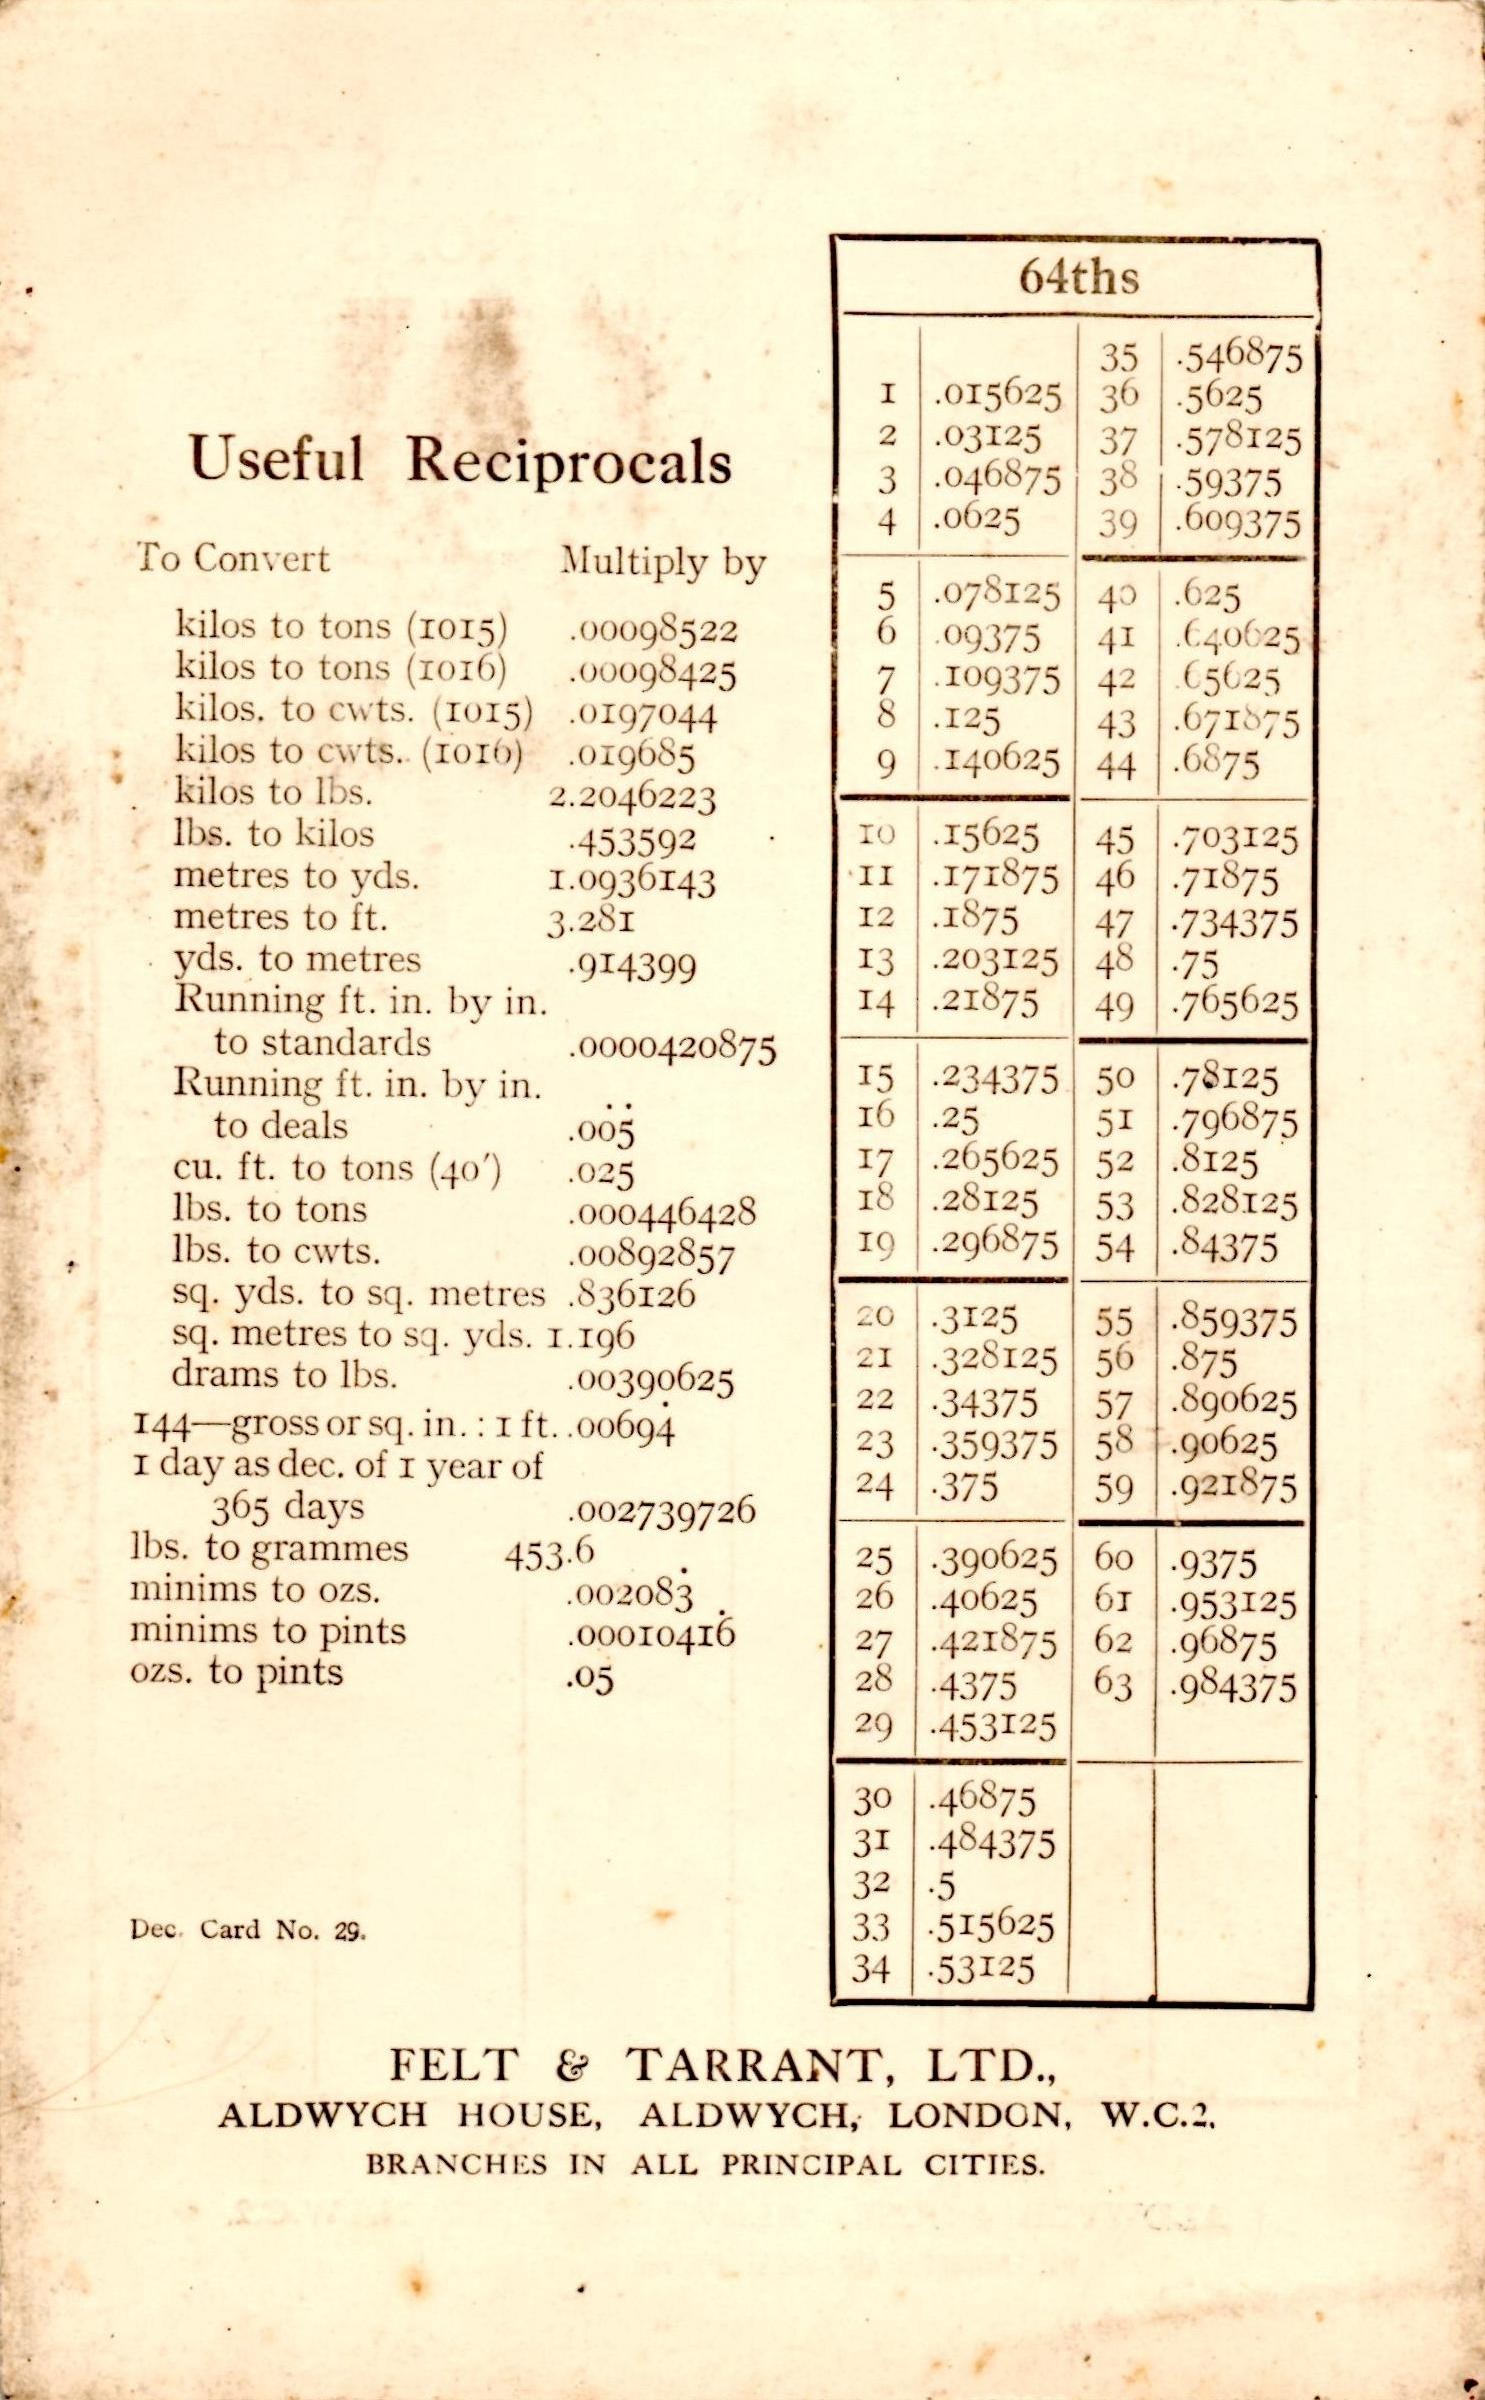 Useful Reciprocals
To Convert Multiply by
kilos to tons (1015) .00098522
kilos to tons (1016) .00098425
kilos. to cwts. (1015) .0197044
kilos to cwts. (1016) .019685
kilos to lbs. 2.2046223
lbs. to kilos .453592
metres to yds. 1.0936143
metres to ft. 3.281
yds. to metres .914399
Running ft. in. by in.
to standards .0000420875
Running ft. in. by in.
to deals .00̇5̇
cu. ft. to tons (40′) .025
lbs. to tons .000446428
lbs. to cwts. .00892857
sq. yds. to sq. metres .836126
sq. metres to sq. yds. 1.196
drams to lbs. .00390625
144—gross or sq. in. : 1 ft. .00694̇
1 day as dec. of 1 year of
365 days .002739726
lbs. to grammes 453.6
minims to ozs. .002083̇
minims to pints .00010416̇
ozs. to pints .05
Dec. Card No. 29.
64ths
35 .546875
1 .015625 36 .5625
2 .03125 37 .578125
3 .046875 38 .59375
4 .0625 39 .609375
5 .078125 40 .625
6 .09375 41 .640625
7 .109375 42 .65625
8 .125 43 .671875
9 .140625 44 .6875
10 .15625 45 .703125
11 .171875 46 .71875
12 .1875 47 .734375
13 .203125 48 .75
14 .21875 49 .765625
15 .234375 50 .78125
16 .25 51 .796875
17 .265625 52 .8125
18 .28125 53 .828125
19 .296875 54 .84375
20 .3125 55 .859375
21 .328125 56 .875
22 .34375 57 .890625
23 .359375 58 .90625
24 .375 59 .921875
25 .390625 60 .9375
26 .40625 61 .953125
27 .421875 62 .96875
28 .4375 63 .984375
29 .453125
30 .46875
31 .484375
32 .5
33 .515625
34 .53125
FELT & TARRANT, LTD.,
ALDWYCH HOUSE, ALDWYCH, LONDON, W.C.2.
BRANCHES IN ALL PRINCIPAL CITIES.